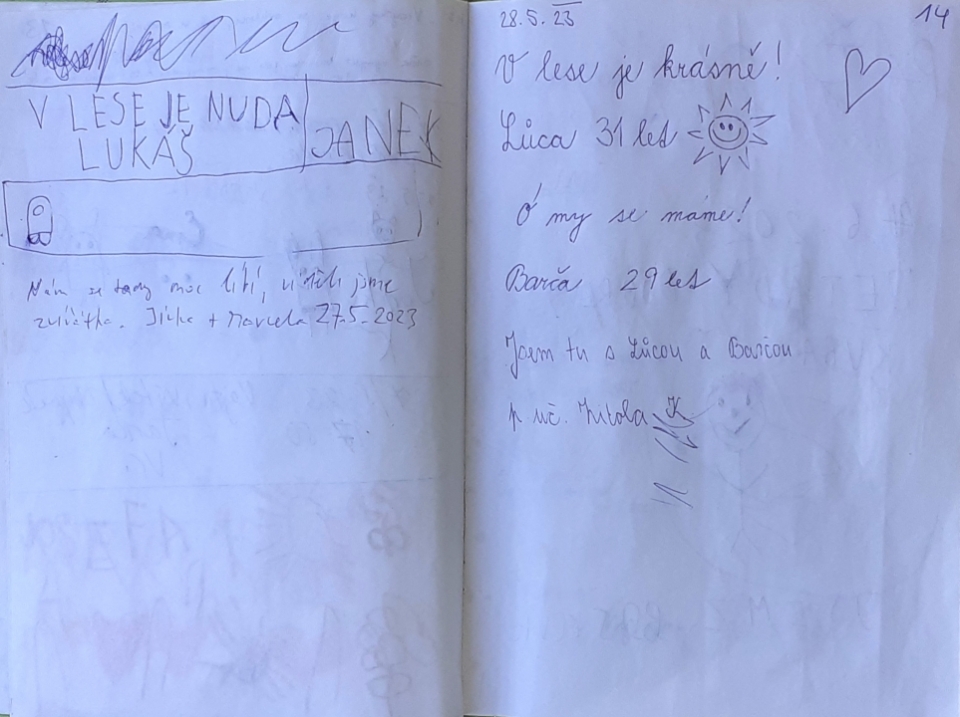 V LESE JE NUDA
LUKÁŠ
JANEK
Nám se tady moc líbí, viděli jsme
zvířátka. Jirka + Marcela 27.5.2023
28.5.23
14
V lese je krásně!
Lůca 31 let
Ó my se máme!
Barča 29 let
Jsem tu s Lůcou a Barčou
p. uč.